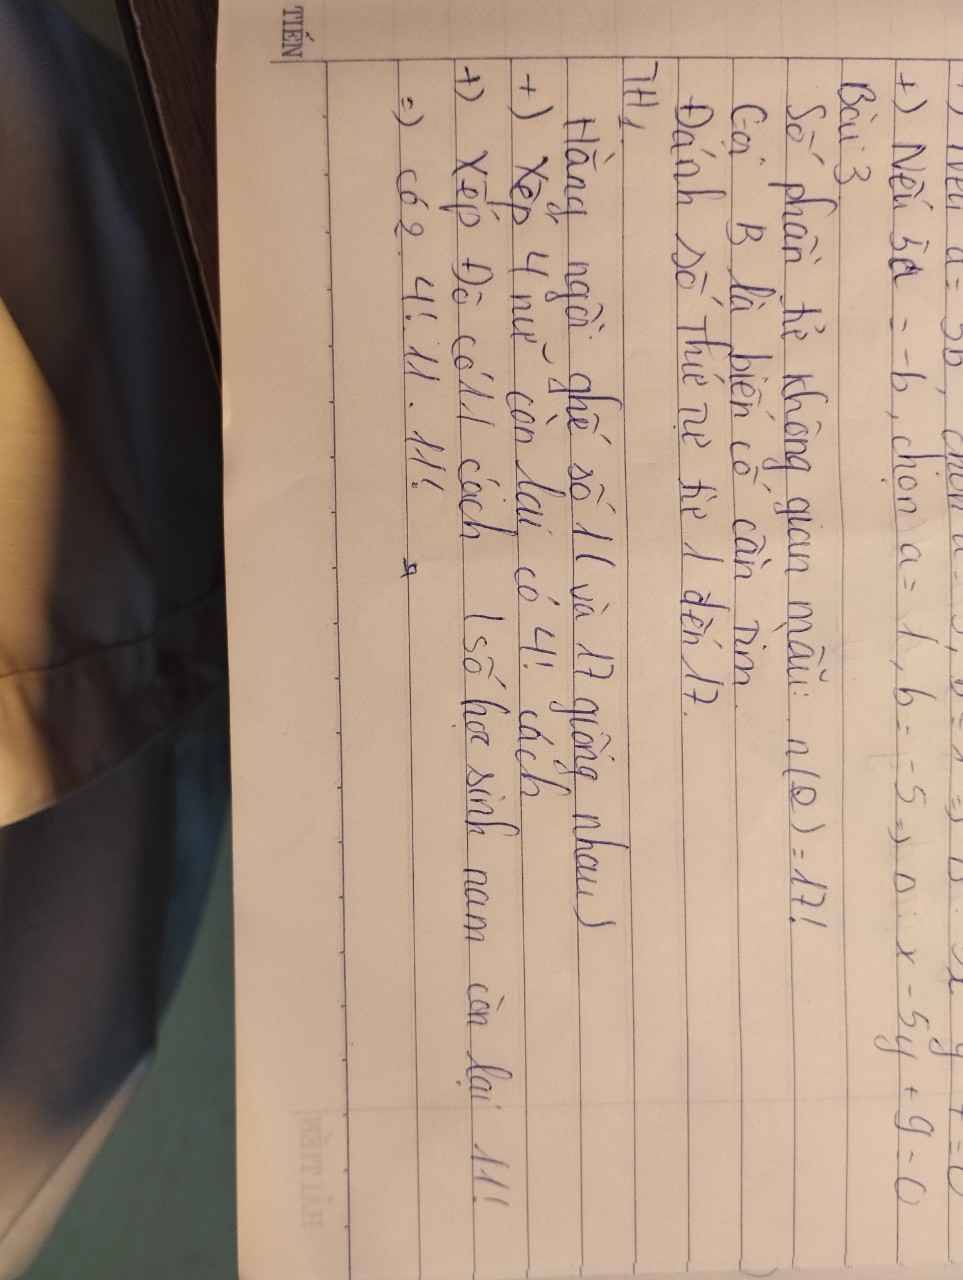 +) Nếu 5a = -b, chọn a = 1, b = -5 => Δ: x - 5y + 9 = 0
Bài 3
Số phần tử không gian mẫu: n(Ω) = 17!
Gọi B là biến cố cần tìm
Đánh số thứ tự từ 1 đến 17.
TH1
Hằng ngồi ghế số 1 ( và 17 giống nhau)
+) Xếp 4 nữ còn lại có 4! cách
+) Xếp Đô có 11 cách ( số học sinh nam còn lại 11!
=) có 2. 4!. 11. 11!
TIẾN